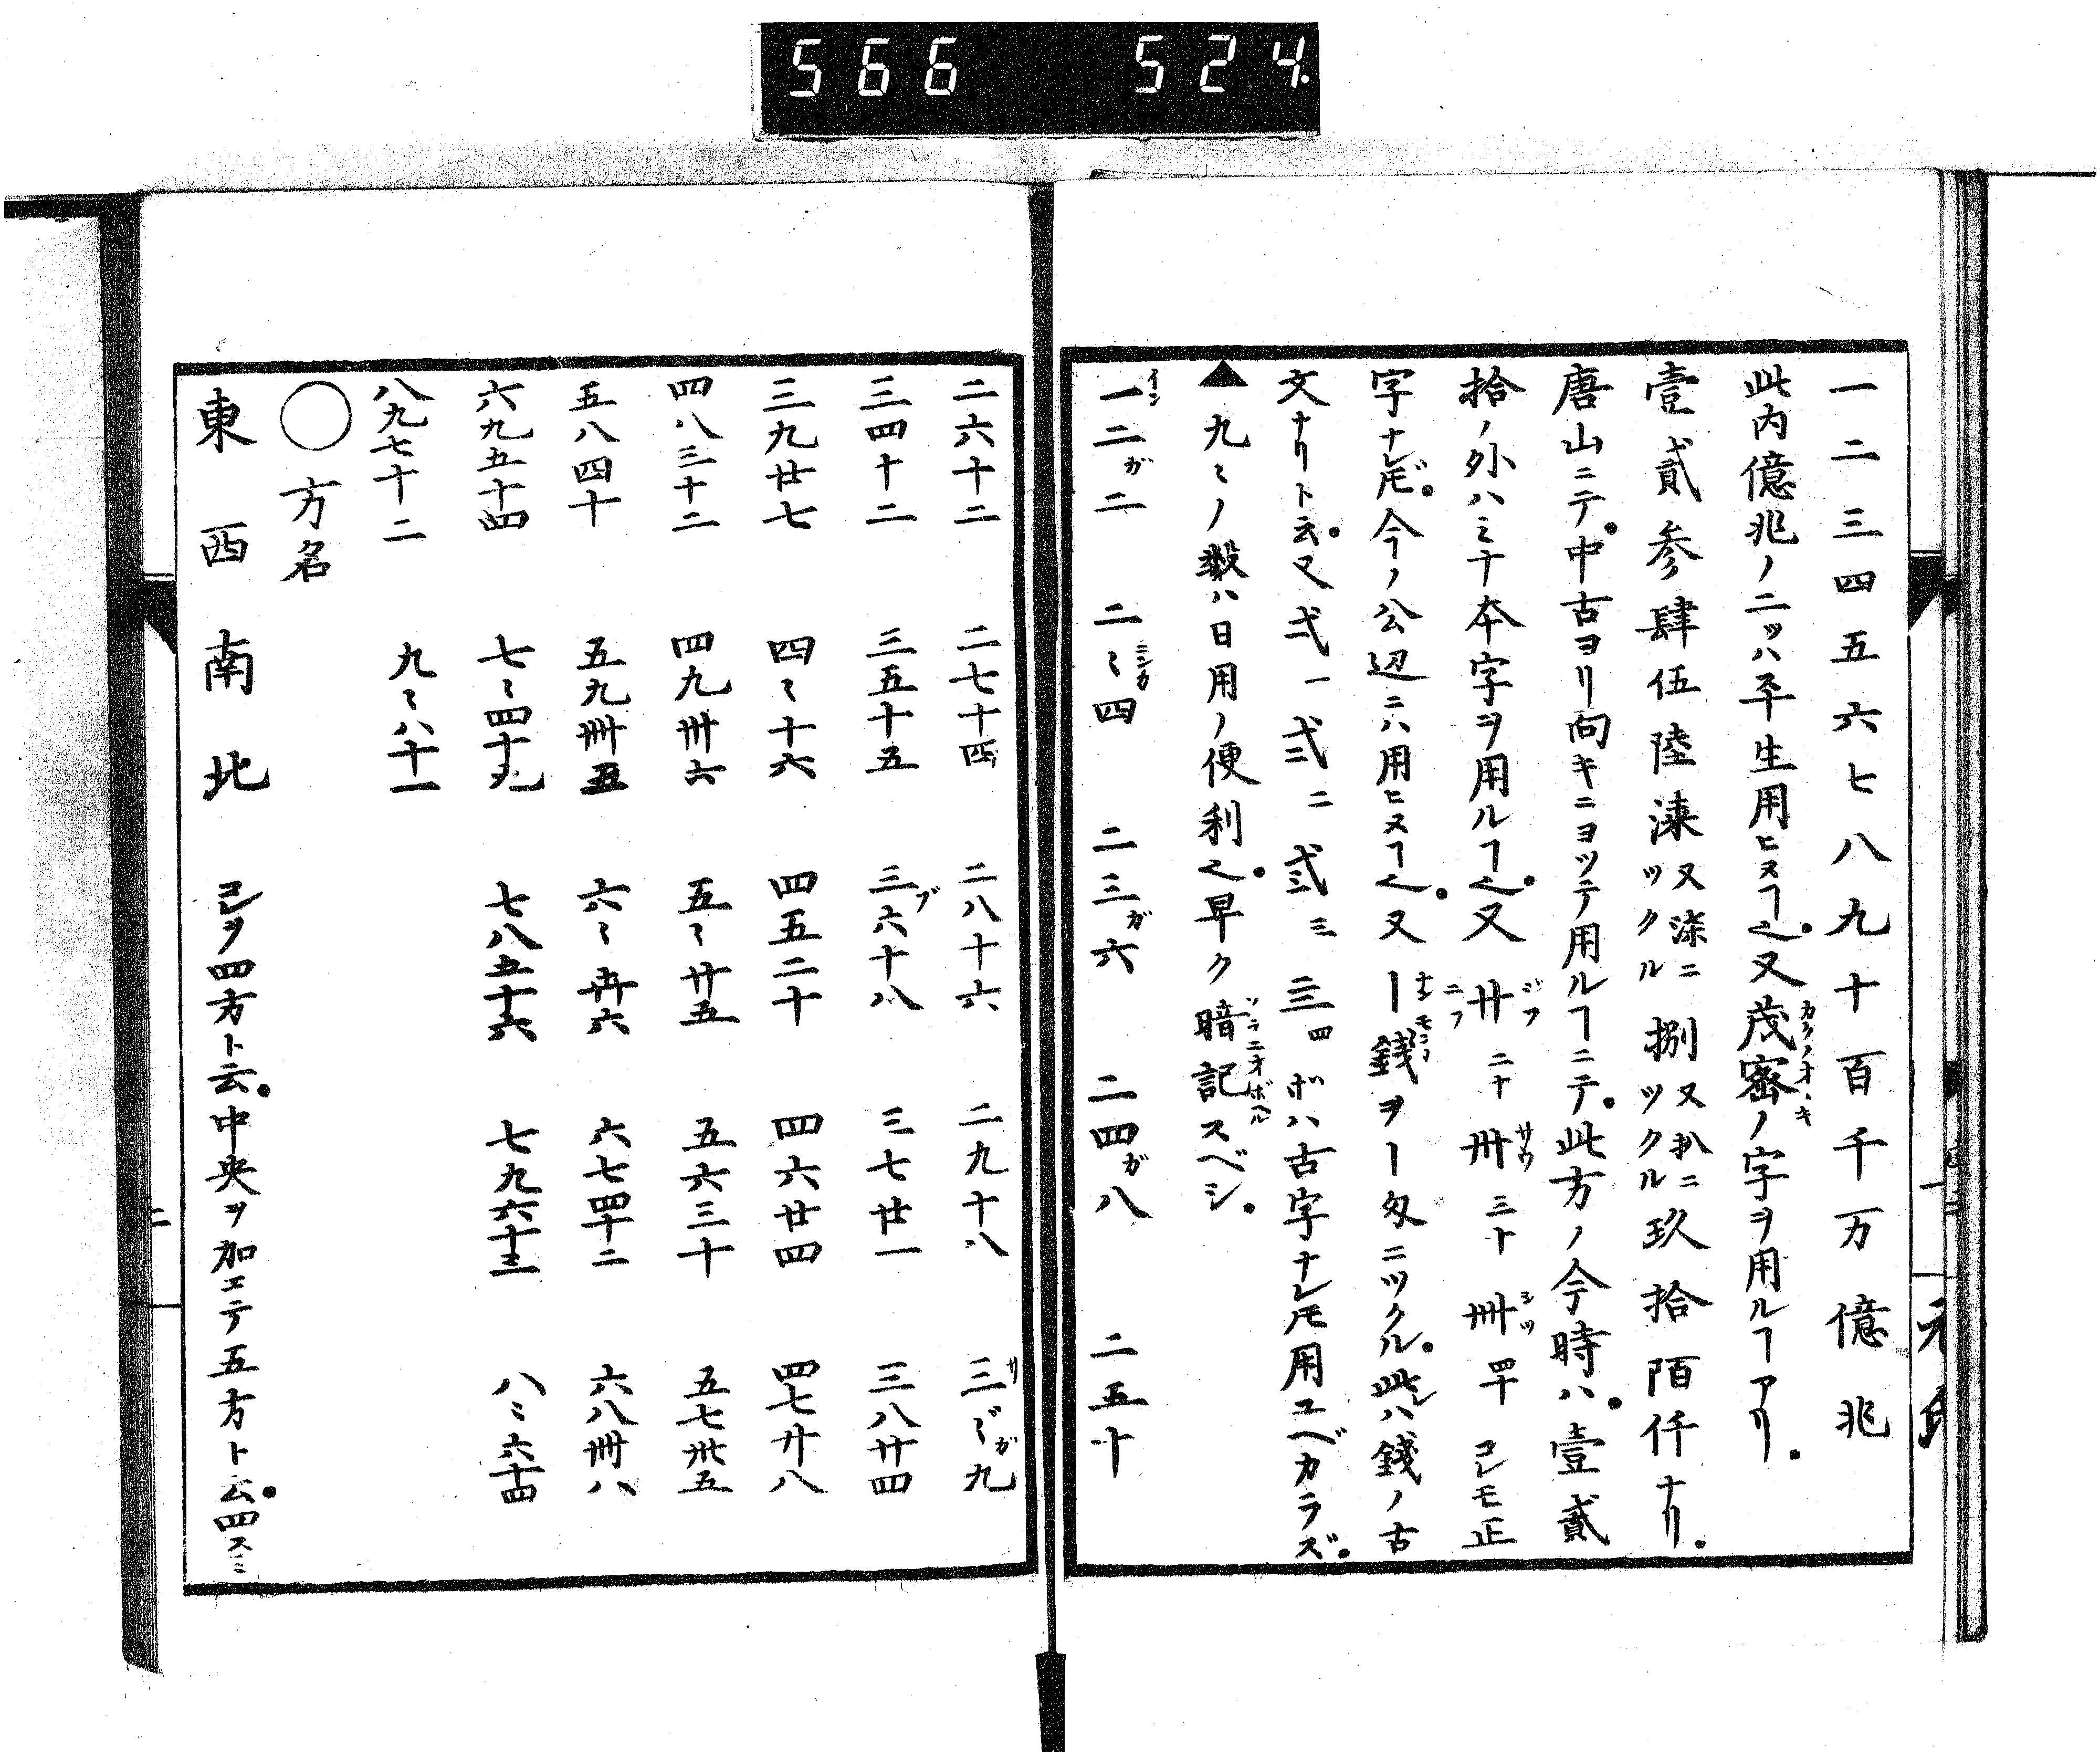 566 524.
一二三四五六七八九十百千万億兆
此内億兆ノ二ッハ平生用ヒヌヿ也。又茂密ノ字ヲ用ルヿアリ。
カクノオヽキ
壹貳参肆伍陸漆又柒ニツクル捌又扒ニツクル玖拾陌仟ナリ。
唐山ニテ。中古ヨリ向キニヨッテ用ルヿニテ。此方ノ今時ハ。壹貳
拾ノ外ハミナ本字ヲ用ルヿ也。又廿二十卅三十卌四十コレモ正
ニフ ジフ サウ シツ
字ナレ𪜈。今ノ公辺ニハ用ヒヌヿ也。又一銭ヲ一匁ニツクル。此レハ錢ノ古
文ナリト云。又弌一弍二弎三亖四ボハ古字ナレ𪜈用ユベカラズ。
▲九〻ノ數ハ日用ノ便利也。早ク暗記スベシ。
ソラニオボヘル
一二ガ二 二〻四 二三ガ六 二四ガ八 二五十
イン ニンガ
二六十二 二七十四 二八十六 二九十八 三〻ガ九
サ
三四十二 三五十五 三六十八 三七廿一 三八廿四
ブ
三九廿七 四〻十六 四五二十 四六廿四 四七廿八
四八三十二 四九卅六 五〻廿五 五六三十 五七卅五
五八四十 五九卌五 六〻卅六 六七四十二 六八卌八
六九五十四 七〻四十九 七八五十六 七九六十三 八〻六十四
八九七十二 九〻八十一
○方名
東西南北 コレヲ四方ト云。中央ヲ加エテ五方ト云。四スミ